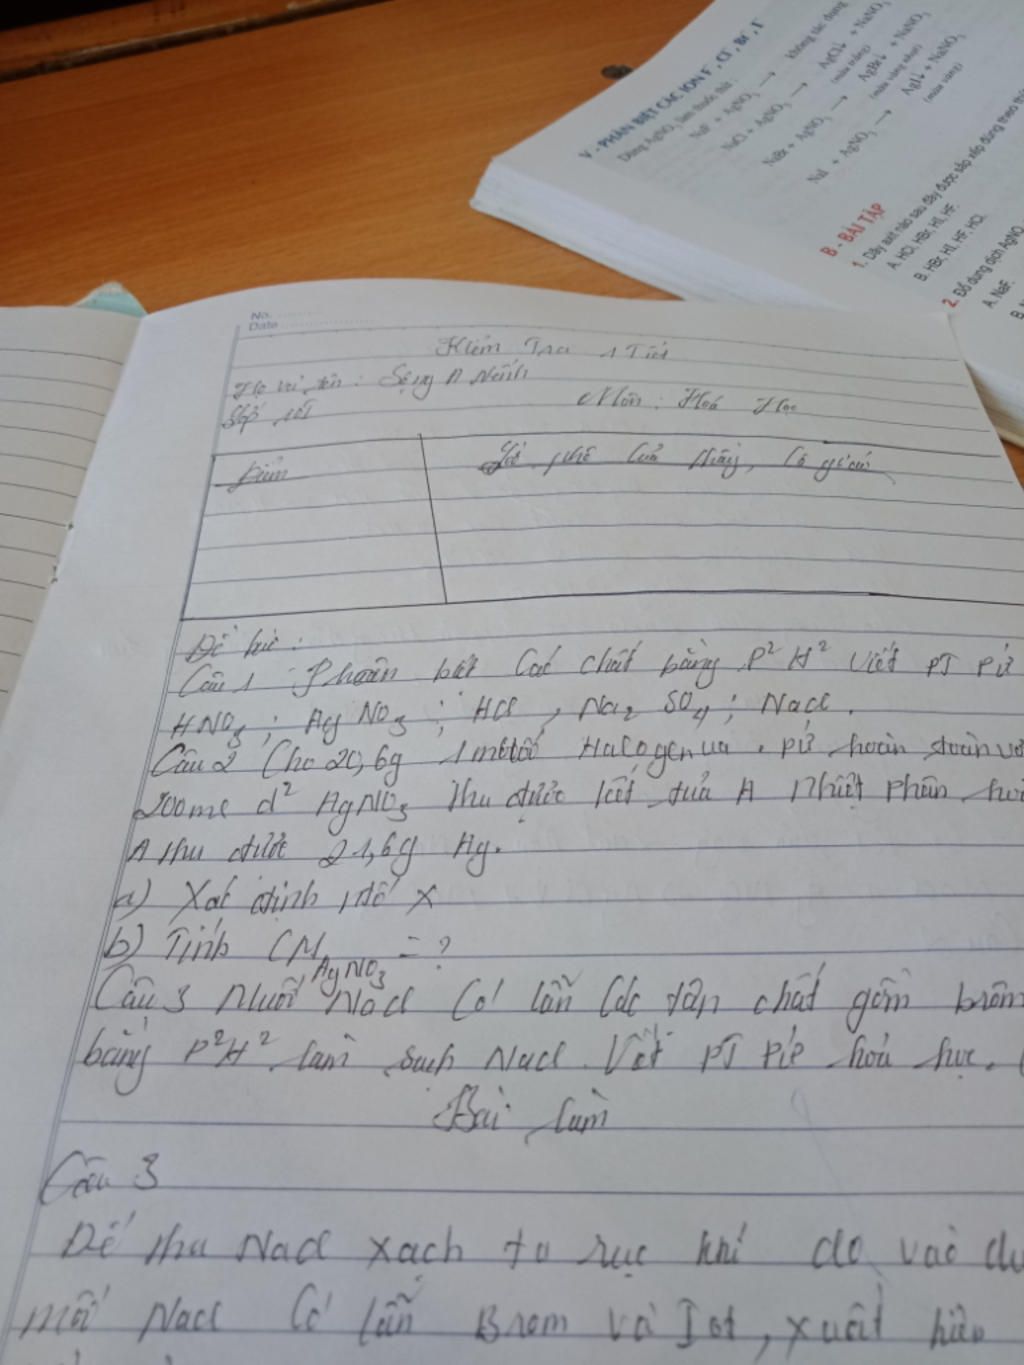 V - PHÂN BIỆT CÁC ION F⁻, Cl⁻, Br⁻, I⁻
Dùng AgNO₃ làm thuốc thử :
NaF + AgNO₃ → không tác dụng
NaCl + AgNO₃ → AgCl↓ + NaNO₃
(màu trắng)
NaBr + AgNO₃ → AgBr↓ + NaNO₃
(màu vàng nhạt)
NaI + AgNO₃ → AgI↓ + NaNO₃
(màu vàng)
B - BÀI TẬP
1. Dãy axit nào sau đây được sắp xếp đúng theo
A. HCl, HBr, HI, HF.
B. HBr, HI, HF, HCl.
2. Đổ dung dịch AgNO
A. NaF.
B.
No.
Date
Kiểm Tra 1 Tiết
Họ và tên : Sộng A Nênh
Môn : Hoá Học
Lớp
Điểm
Lời phê của thầy, cô giáo
Đề bài :
Câu 1 : Phân biệt các chất bằng P² H² viết PT PƯ
HNO₃ ; AgNO₃ ; HCl , Na₂SO₄ ; NaCl .
Câu 2 Cho 20,6g 1 muối Halogenua . pứ hoàn toàn
200ml d² AgNO₃ thu được kết tủa A Nhiệt phân
A thu được 21,6g Ag.
a) Xác định X
b) Tính CM AgNO₃ = ?
Câu 3 Muối NaCl Có lẫn Các tạp chất gồm brôm
bằng P²H² làm sạch NaCl . Viết PT PƯ hoá học .
Bài làm
Câu 3
Để thu NaCl xach ta sục khí clo vào
muối NaCl Có lẫn Brom và Iot, xuất hiện